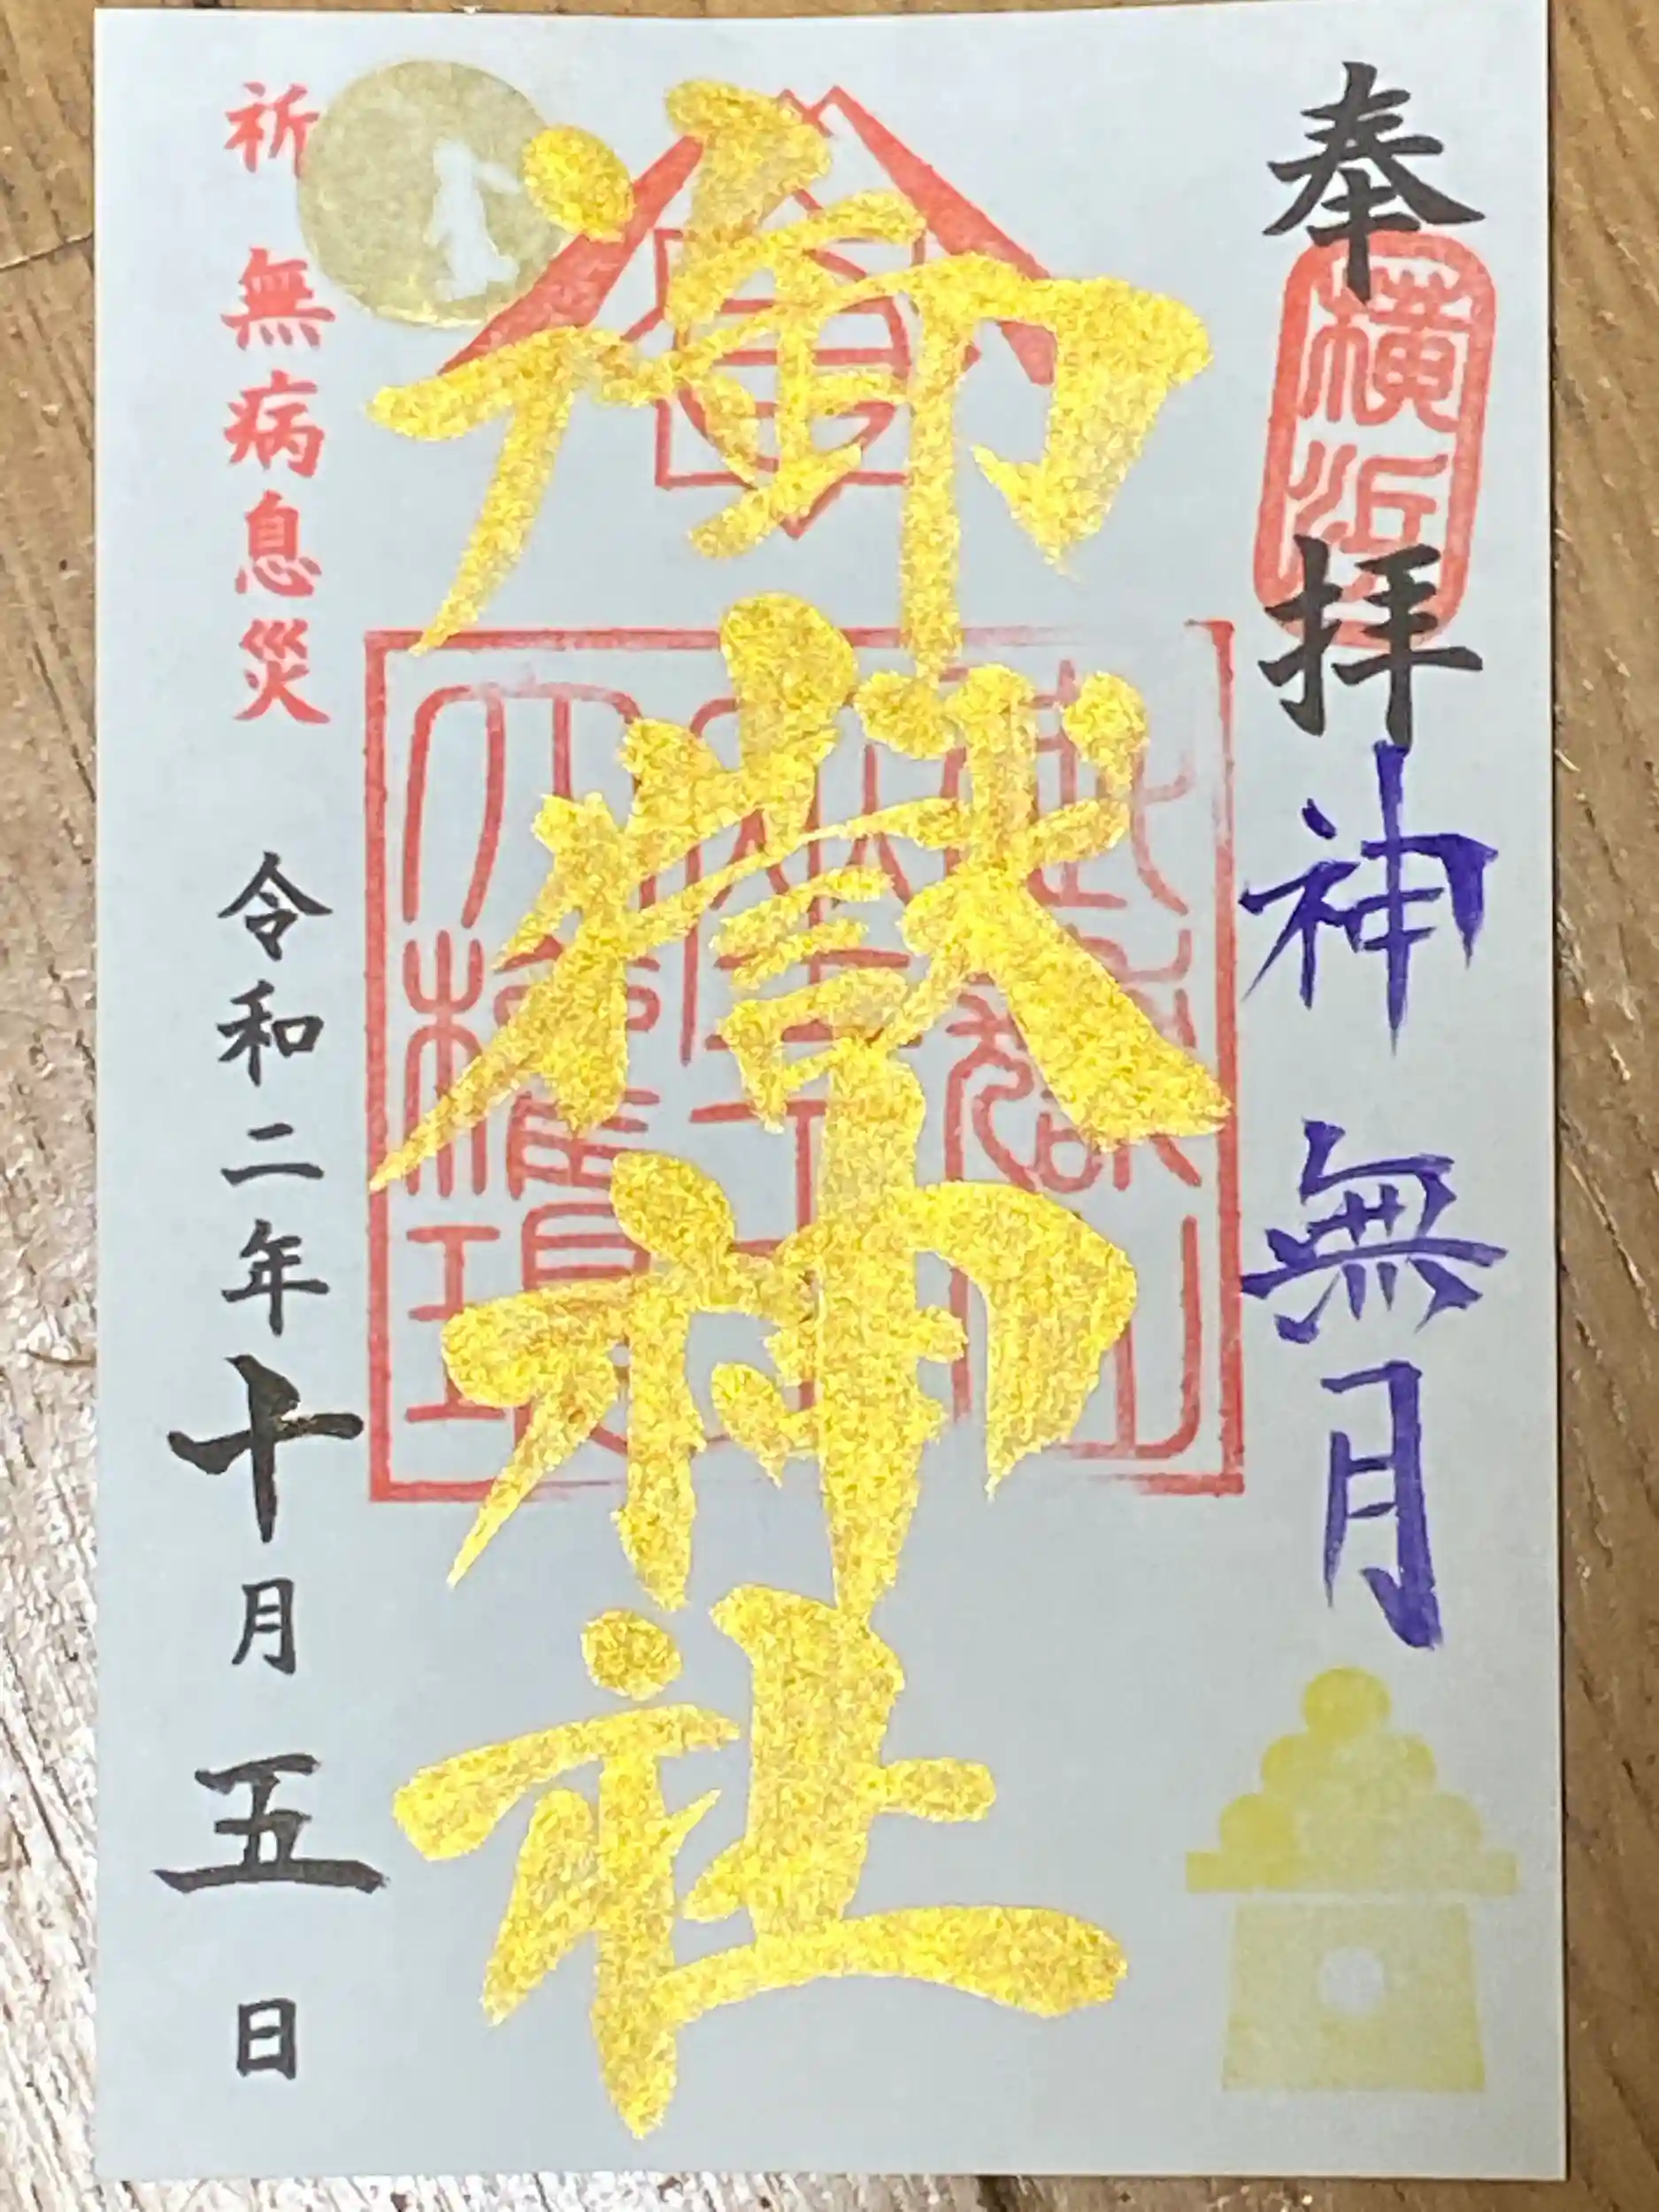 奉拝
横浜
神無月
御嶽神社
祈 無病息災
令和二年十月五日